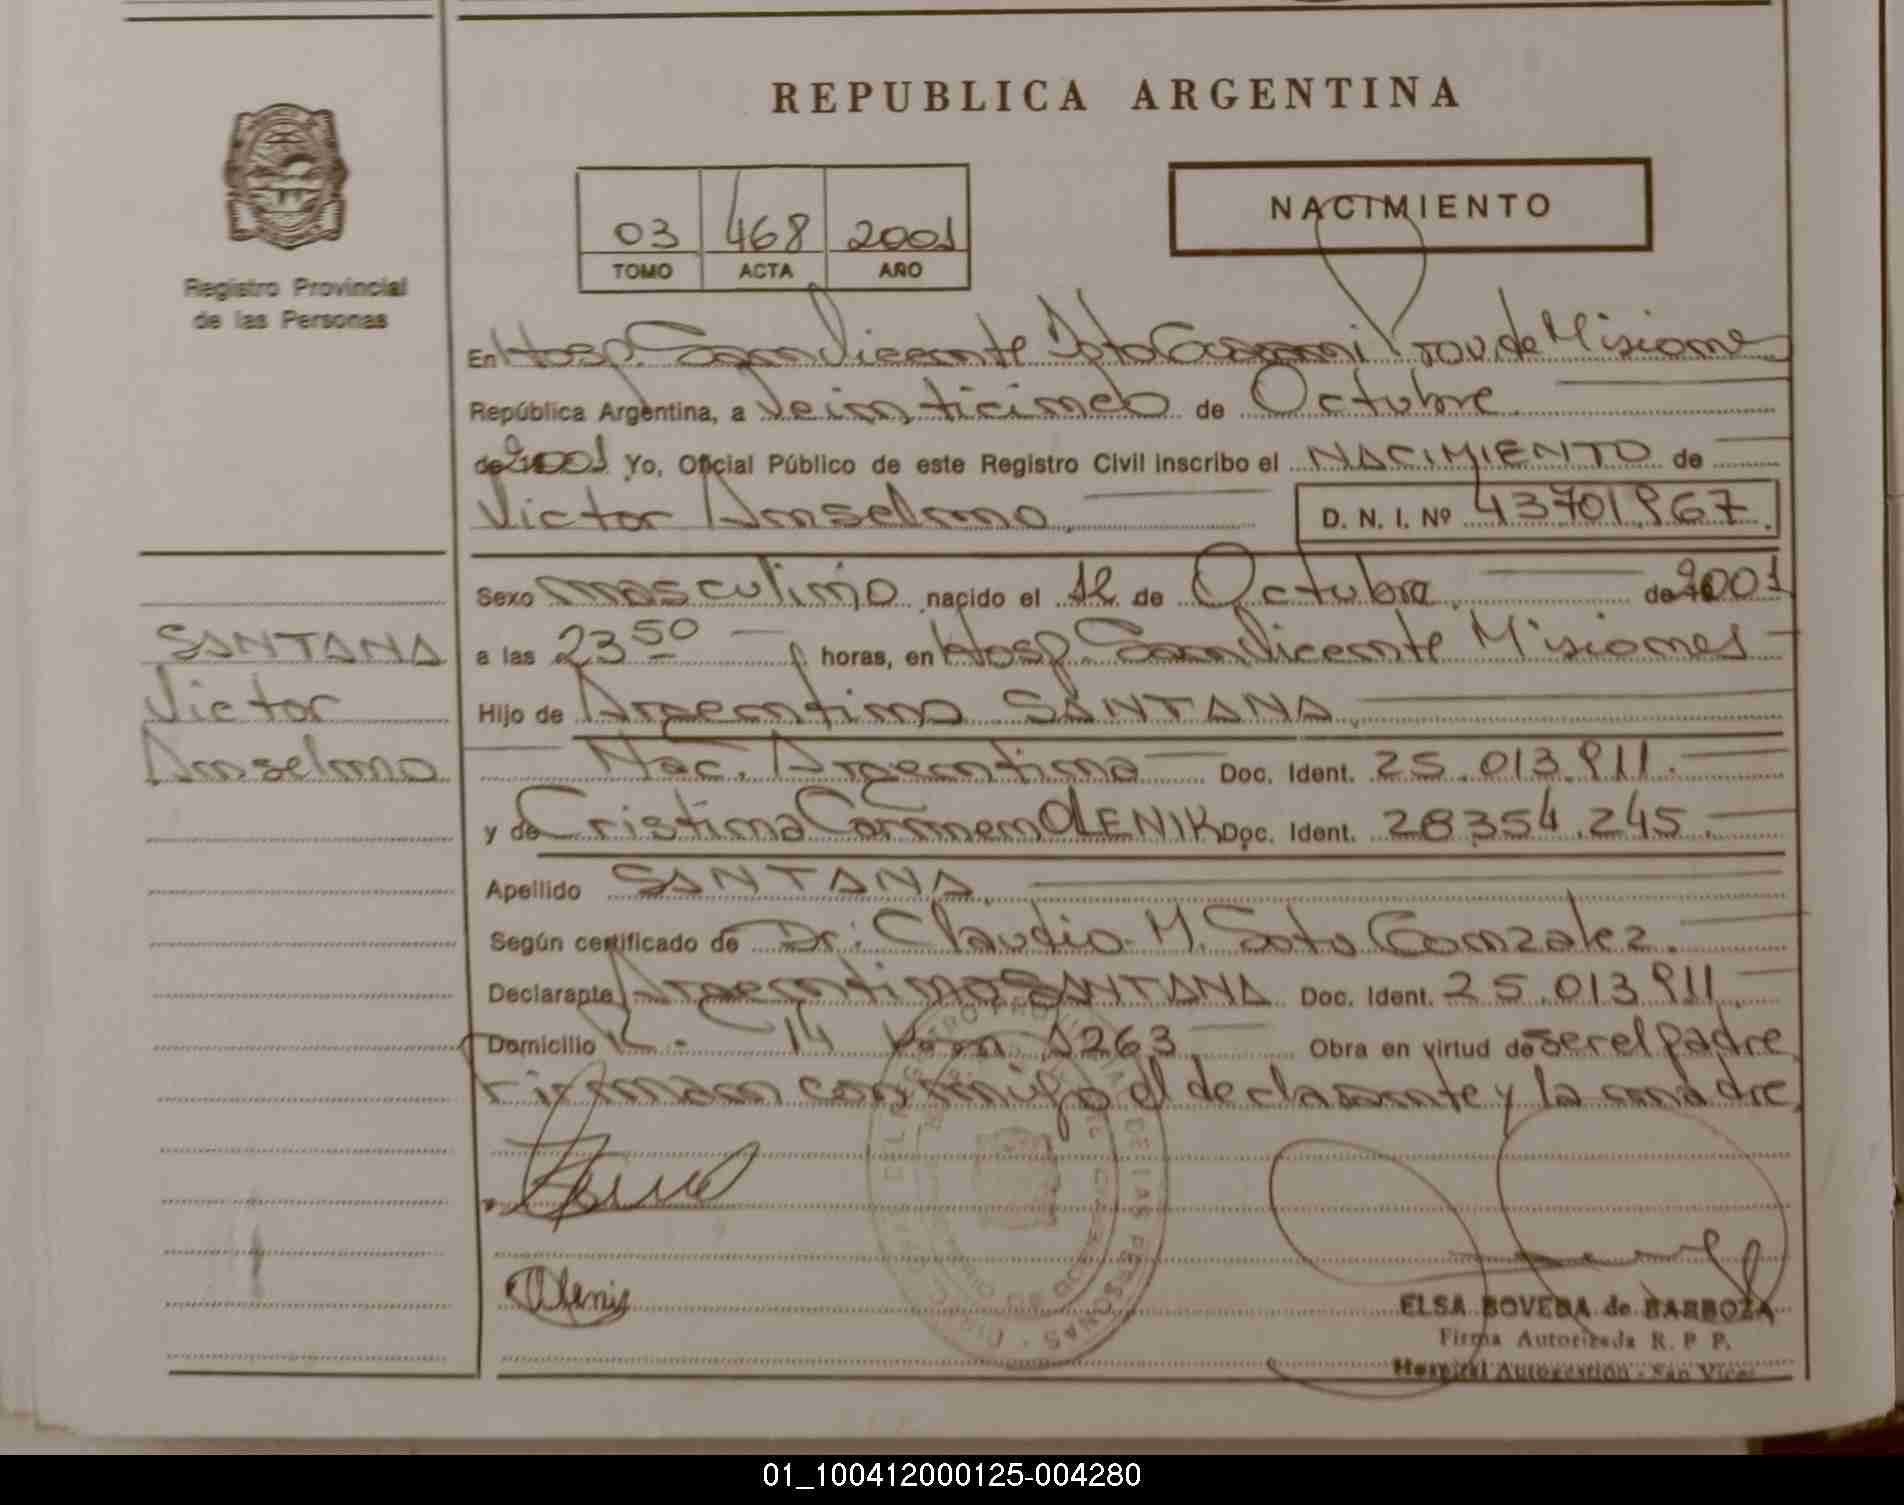 REPUBLICA ARGENTINA
Registro Provincial
de las Personas
03 468 2001
TOMO ACTA AÑO
NACIMIENTO
En Hosp. San Vicente Dto Guarani Prov de Misiones
República Argentina, a Veinticinco de Octubre
de 2001 Yo, Oficial Público de este Registro Civil inscribo el NACIMIENTO de
Victor Anselmo
D. N. I. Nº 43701967.
Sexo masculino nacido el 12 de Octubre de 2001
a las 23 50 horas, en Hosp. San Vicente Misiones
Hijo de Argentino SANTANA
Nac. Argentina Doc. Ident. 25.013.911.
y de Cristina Carmem OLENIK Doc. Ident. 28354.245.
Apellido SANTANA
Según certificado de Dr. Claudio M. Soto Gonzalez.
Declarante Argentino SANTANA Doc. Ident. 25.013911
Domicilio K. 14 1263 Obra en virtud de ser el padre
Firmam conmigo el declarante y la madre.
SANTANA
Victor
Anselmo
Olenik
ELSA BOVEDA de BARBOZA
Firma Autorizada R. P. P.
Hospital Autogestión - San Vicen
01_100412000125-004280